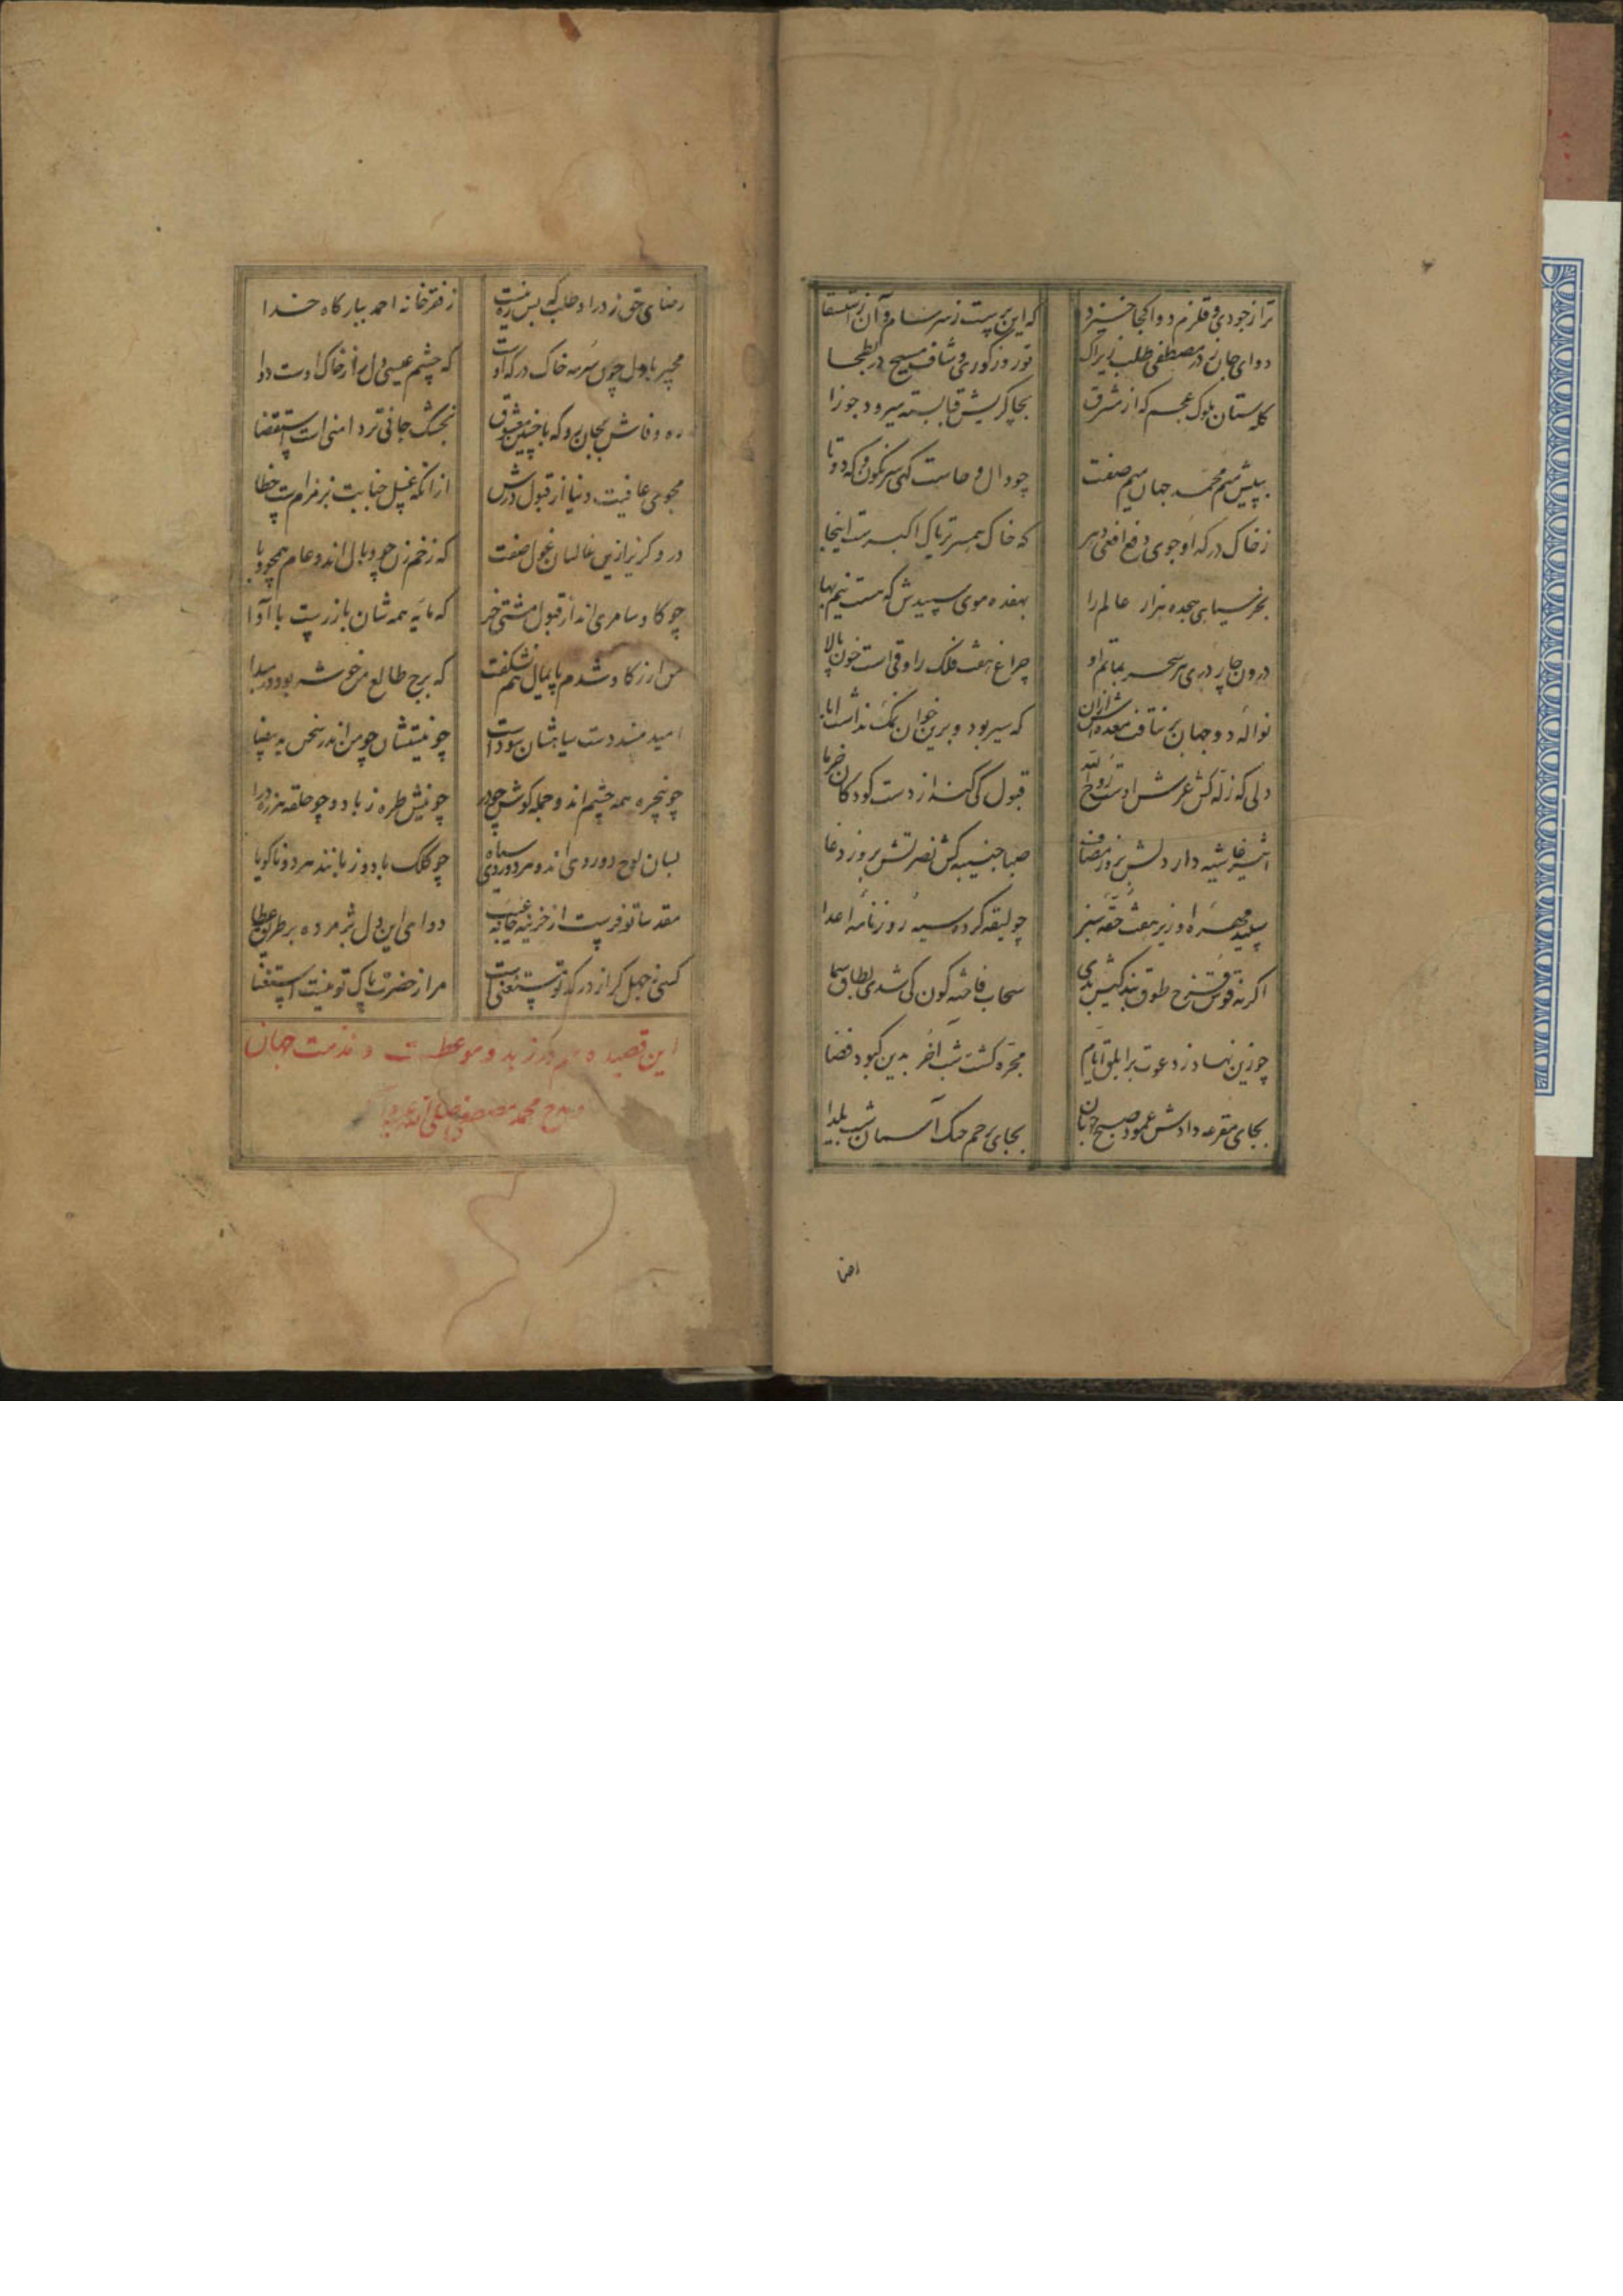 ترا ز جودی و قلزم دوا کجا خیزد
که این پرست ز سرسام و آن ز استسقا
دوای جان ز در مصطفی طلب زیراک
تو روز کوری و شاف مسیح در بطحا
کله ستان ملوک عجم که از مشرق
بچاکریش قبا بسته میرود جوزا
به پیش میم محمد جهان میم صفت
چو دال و حاست کهی سرنگون و که دوتا
ز خاک درکه او جوی دفع افعی دهر
که خاک همسر تریاک اکبرست اینجا
بخر سیاهی هجده هزار عالم را
بهفده موی سپیدش که هست نیم بها
درون چار دری هر سحر بماتم او
چراغ هفت فلک راوقی است خون پالا
نواله دو جهان برنتافت معده اش از آن
که سیر بود و برین خوان نمک نداشت ابا
دلی که زله کش عرش اوست روح الله
قبول کی کند از دست کودکان خرما
اثیر غاشیه دار دلش بروز مصاف
صبا جنیبه کش نصرتش بروز دغا
سپید مهره او زیر هفت حقه سبز
چو لیقه کرده سیه روزنامه اعدا
اگر نه قوس قزح طوق بندکیش بدی
سحاب فاخته کون کی شدی بطاق سما
چو زین نهاد ز دعوت بر ابلق ایام
مجره کشت شب آخر بدین کبود فضا
بجای مقرعه دادش عمود صبح جهان
بجای پرچم خنک آسمان شب یلدا
رضا
رضای حق ز در او طلب که بس ره نیست
ز فقر خانه احمد ببارکاه خدا
مجیر بادل چون سرمه خاک درکه اوست
که چشم عیسی دل را ز خاک اوست دوا
ره وفاش بجان رو که با چنین معشوق
بخشک جانی تردامنی است استقضا
مجوی عافیت دنیا از قبول درش
از آنکه غسل جنابت ز زمزم است خطا
درو کریز ازین غالبان غول صفت
که زخم زن چو وبال اند و عام همچو وبا
چو کاو سامری اند از قبول مشتی خر
که مایه همه شان با زرست با آوا
من ار ز کاو شدم پایمال نیست شکفت
که برج طالع من خوشه بود در مبدا
امید مسند دست سیاهشان سوداست
چو نیستشان چو من اندر سخن ید بیضا
چو پنجره همه چشم اند و جمله کوش چو در
چو نیش طره ز باد و چو حلقه هرزه درا
بسان لوح دو روی اند و هر دو روی سیاه
چو کلک با دو زبانند هر دو ناکویا
مقدسا تو فرست از خزینه خانه غیب
دوای این دل پژمرده بر طریق عطا
کسی ز جهل کر از درکه تو مستغنی است
مرا ز حضرت پاک تو نیست استغنا
این قصیده هم در زهد و موعظت و مذمت جهان
و مدح محمد مصطفی صلی الله علیه